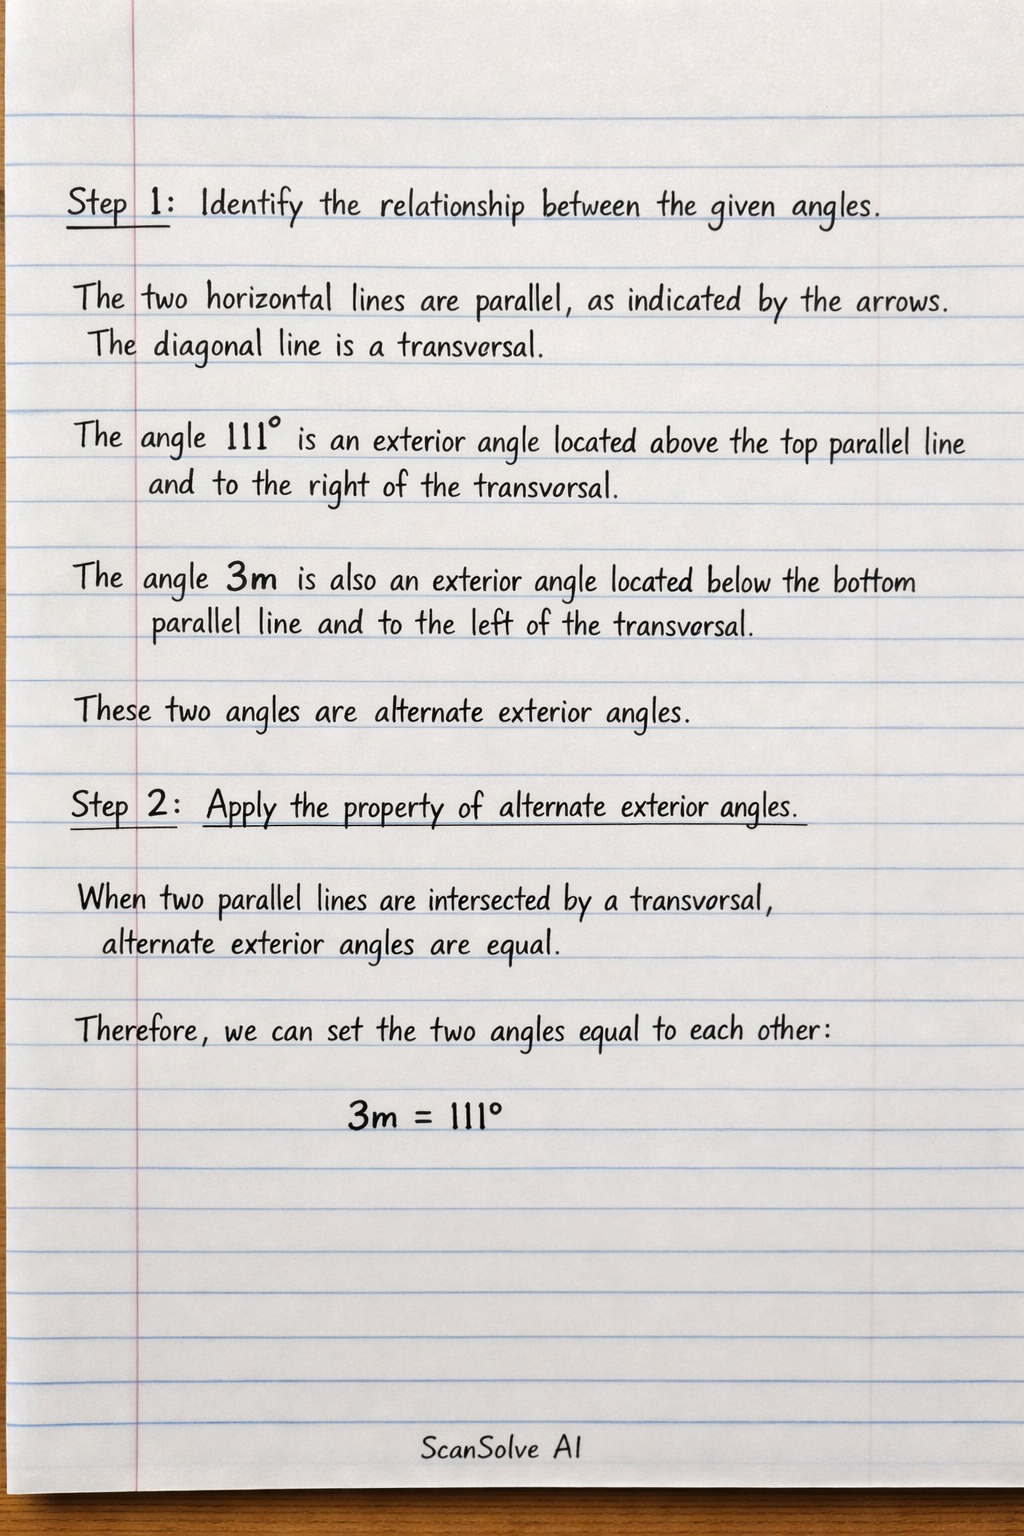 Step 1: Identify the relationship between the given angles.
The two horizontal lines are parallel, as indicated by the arrows.
The diagonal line is a transversal.
The angle 111° is an exterior angle located above the top parallel line
and to the right of the transvorsal.
The angle 3m is also an exterior angle located below the bottom
parallel line and to the left of the transvorsal.
These two angles are alternate exterior angles.
Step 2: Apply the property of alternate exterior angles.
When two parallel lines are intersected by a transvorsal,
alternate exterior angles are equal.
Therefore, we can set the two angles equal to each other:
3m = 111°
ScanSolve AI